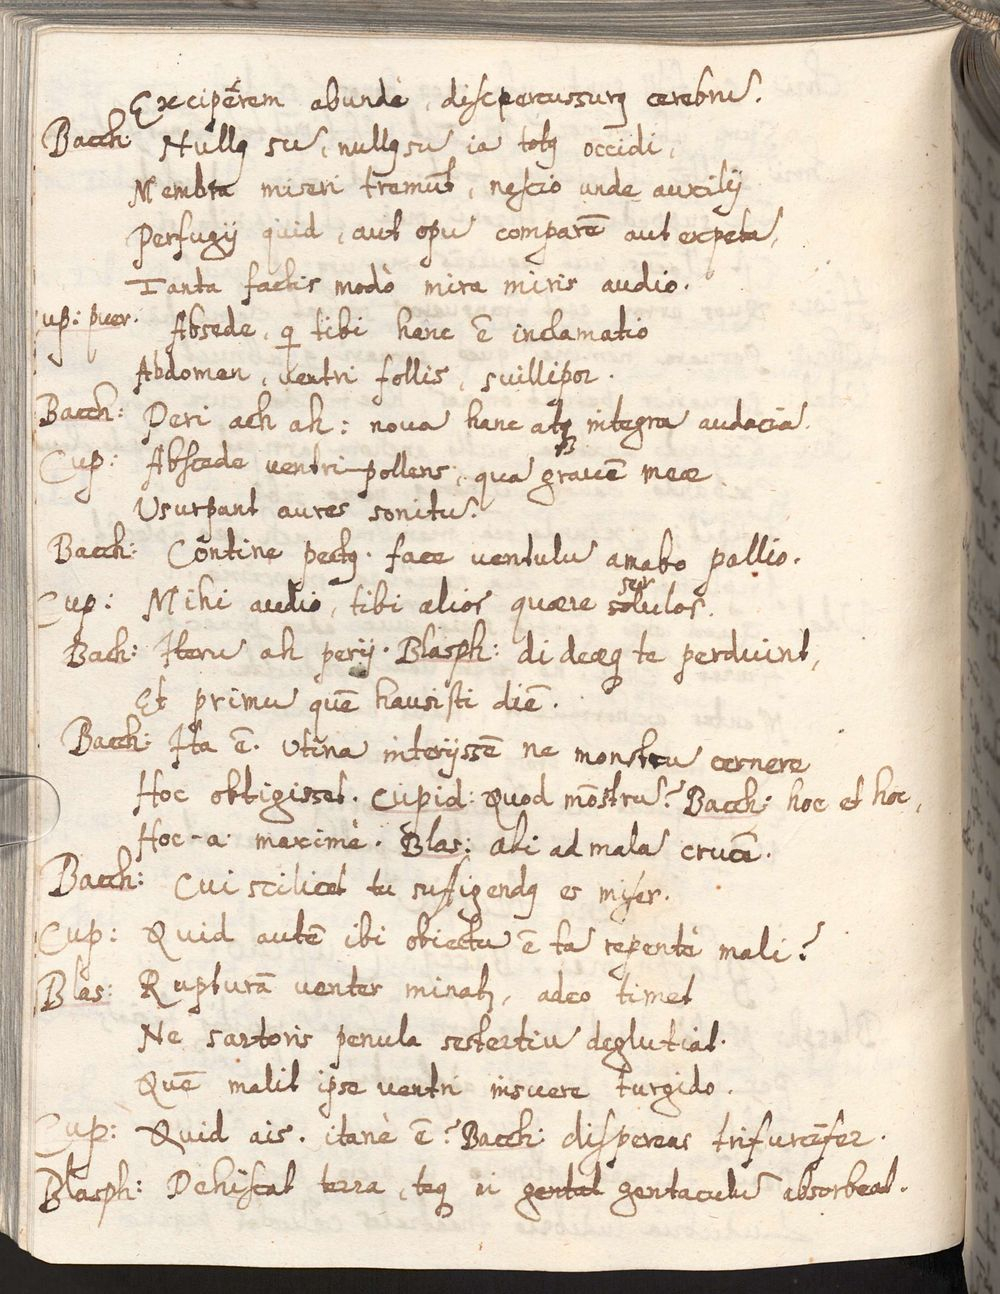 Exciperem abundè, discpercussurq cerebrū.
Bacch: Nullq sū, nullq sū iā totq occidi,
Membra miseri tremūt, nescio unde auxilij
Perfugij quid, aut opū comparē aut expetā,
Tanta factis modò mira miris audio.
up: puer. Absede, q tibi hanc ē inclamatio
Abdomen, ventri follis, suillipor.
Bacch: Peri ach ah: nova hanc atq integra audaciā.
Cup: Abscede ventri-pollens, qua gravē meae
Usurpant aures sonitū.
Bacch: Contine pectq. face ventulū amabo pallio.
Cup: Mihi audio, tibi alios quaere servulos.
Bach: Iterū ah perij. Blasph: di deaeq te perduint,
Et primū quē hausisti diē.
Bacch: Ita ē. Utinā interijssē ne monstrū cernere
Hoc obtigisset. Cupid: Quod mōstrū? Bacch: hoc et hoc,
Hoc-a maximè. Blas: abi ad malā crucē.
Bacch: Cui scilicet tu sufigendq es miser.
Cup: Quid autē ibi obiectū ē tā repentè mali?
Blas: Rupturā venter minatr, adeo timet
Ne sartoris penula sestertiū deglutiat.
Quē malit ipse ventri insuere turgido.
Cup: Quid ais. itanè ē? Bacch: dispereas trifurcifer.
Blasph: Dehiscat terra, teq vi gentat gentaculū absorbeat.